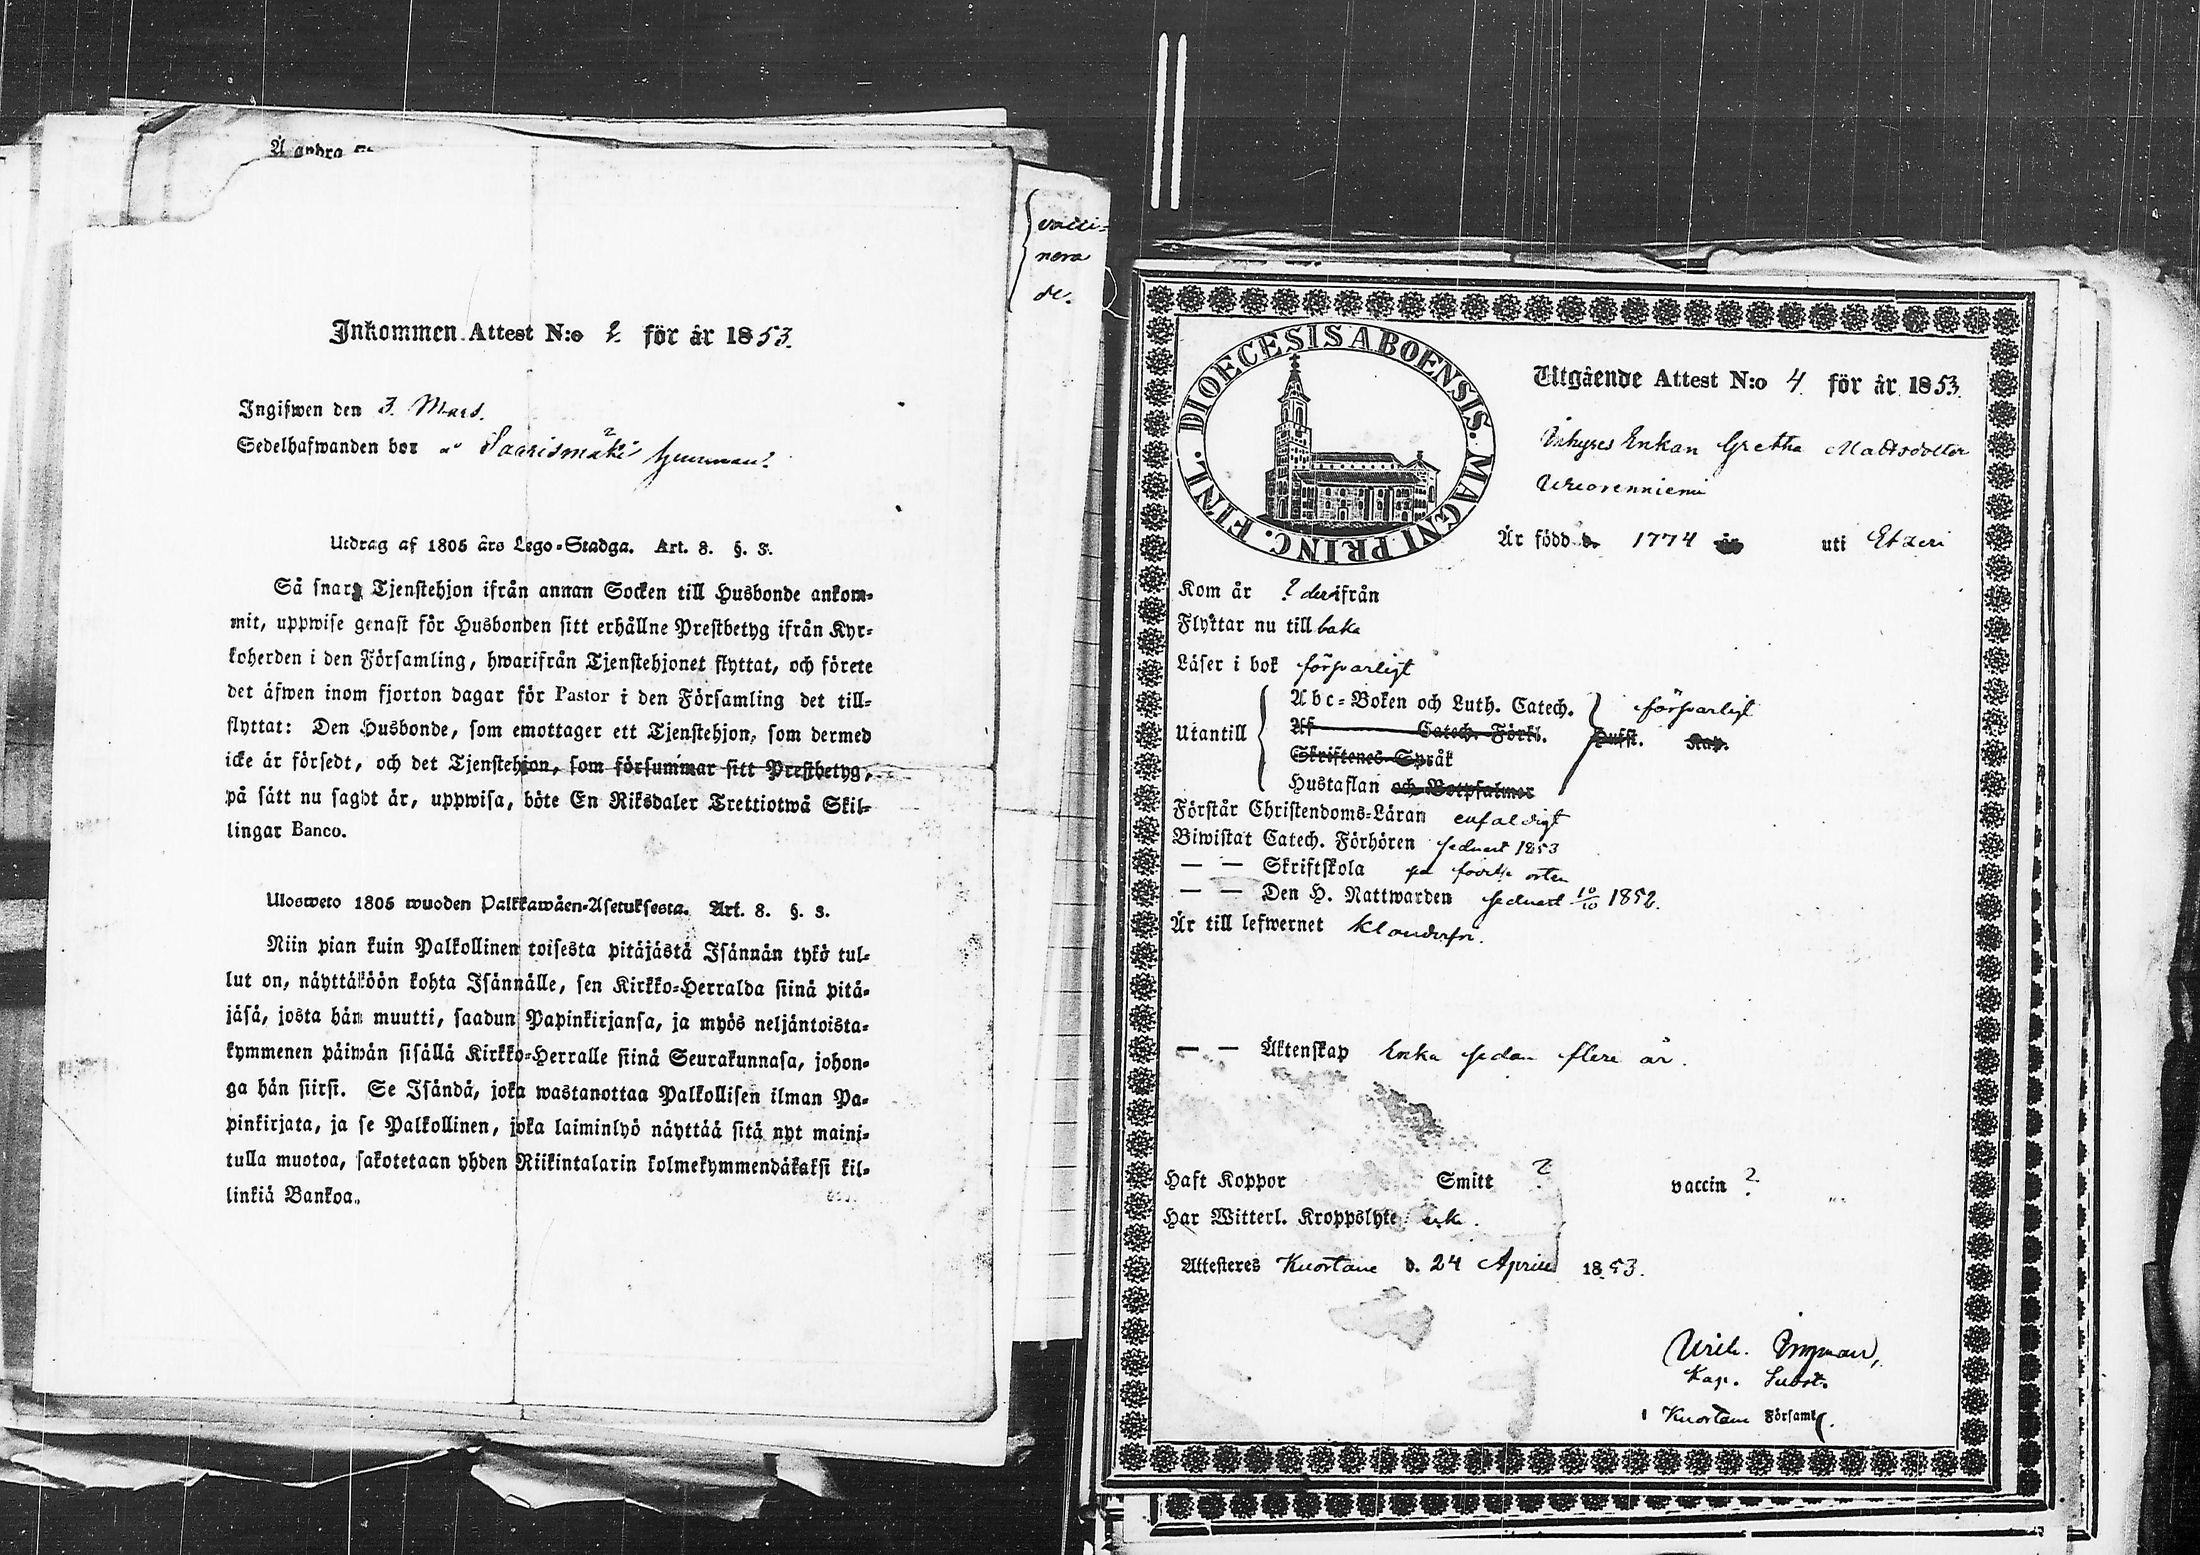 Inkommen Attest N:o 2 för år 1853.
Ingifwen den 3. Mars.
Sedelhafwanden bor å Saarismäki
Utdrag af 1805 års Lego-Stadga. Art. 8. §. 3.
Så snart Tjenstehjon ifrån annan Socken till Husbonde ankom-
mit, uppwise genast för Husbonden sitt erhållne Prestbetyg ifrån Kyr-
koherden i den Församling, hwarifrån Tjenstehjonet flyttat, och förete
det äfwen inom fjorton dagar för Pastor i den Församling det till-
flyttat: Den Husbonde, som emottager ett Tjenstehjon, som dermed
icke är försedt, och det Tjenstehjon, som försummar sitt Prestbetyg,
på sätt nu sagdt är, uppwisa, böte En Riksdaler Trettiotwå Skil-
lingar Banco.
Ulosweto 1805 wuoden Palkkawäen-Asetuksesta. Art. 8. §. 3.
Niin pian kuin Palkollinen toisesta pitäjästä Isännän tykö tul-
lut on, näyttäköön kohta Isännälle, sen Kirkko-Herralda siinä pitä-
jäsä, josta hän muutti, saadun Papinkirjansa, ja myös neljäntoista-
kymmenen päiwän sisällä Kirkko-Herralle siinä Seurakunnasa, johon-
ga hän siirsi. Se Isändä, joka wastanottaa Palkollisen ilman Pa-
pinkirjata, ja se Palkollinen, joka laiminlyö näyttää sitä nyt maini-
tulla muotoa, sakotetaan yhden Riikintalarin kolmekymmendäkaksi kil-
linkiä Bankoa.
vacci-
nera
de.
DIOECESIS ABOENSIS. MAGNI PRINC. FINL.
Utgående Attest N:o 4 för år 1853.
Inhyses Enkan Gretha Mattsdotter
Är född d. 1774 år uti Etzeri
Kom år ? derifrån
Flyttar nu till baka
Läser i bok försvarligt
Utantill
Abc-Boken och Luth. Catech. försvarligt
Af Catech. Förkl. Hufst. Kap.
Skriftenes Språk
Hustaflan och Botpsalmer
Förstår Christendoms-Läran enfaldigt
Biwistat Catech. Förhören sednast 1853
— — Skriftskola på förra orten
— — Den H. Nattwarden sednast 10/10 1852.
Är till lefwernet klanderfri.
— — Äktenskap Enka sedan flere år.
Haft Koppor Smitt ? vaccin ?
Har Witterl. Kroppslyte icke.
Attesteres Kuortane d. 24 April 1853.
Ingman,
Kap. Subst.
i Kuortane Församl.